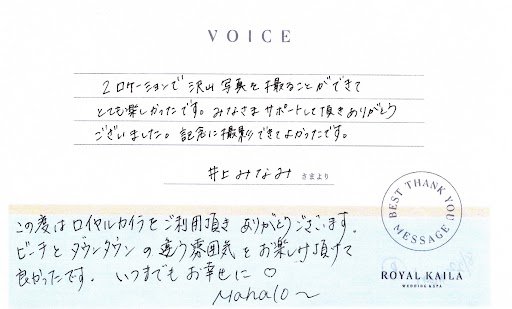 VOICE
2ロケーションで沢山写真を撮ることができて
とても楽しかったです。みなさまサポートして頂きありがとう
ございました。記念に撮影できてよかったです。
井上みなみ さまより
BEST THANK YOU MESSAGE
この度はロイヤルカイラをご利用頂きありがとうございます。
ビーチとダウンタウンの違う雰囲気をお楽しみ頂けて
良かったです。いつまでもお幸せに♡
Mahalo~
ROYAL KAILA
WEDDING & SPA